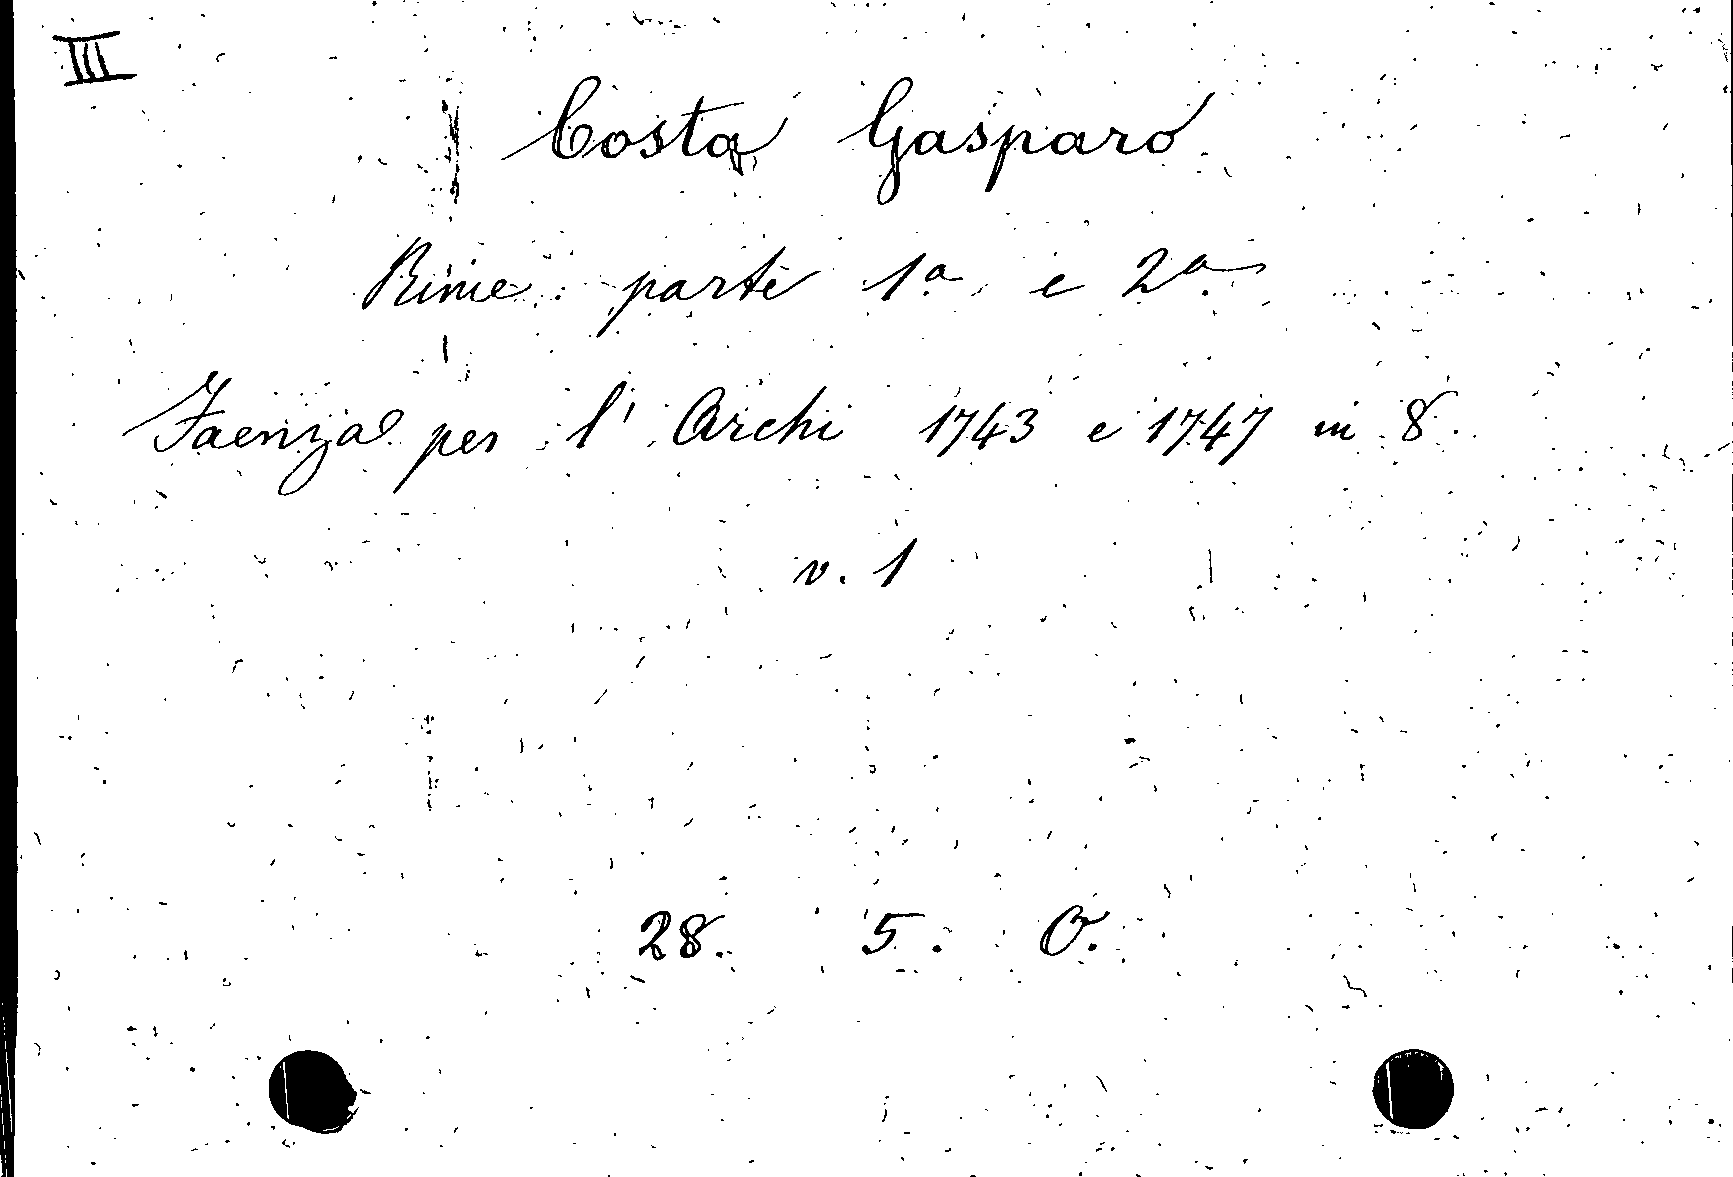 III
Costa Gasparo
Rime parte 1a e 2a
Faenza per l'Archi 1743 e 1747 in 8
v. 1
28. 5. O.